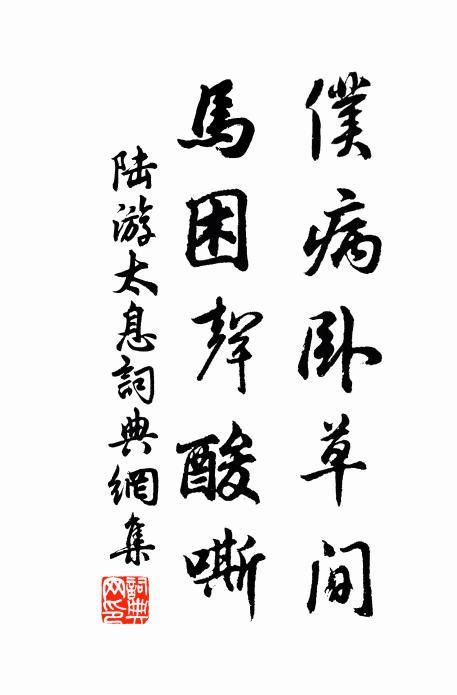 僕病臥草間
馬困聲酸嘶
陸游太息詞典網集
詞典網印